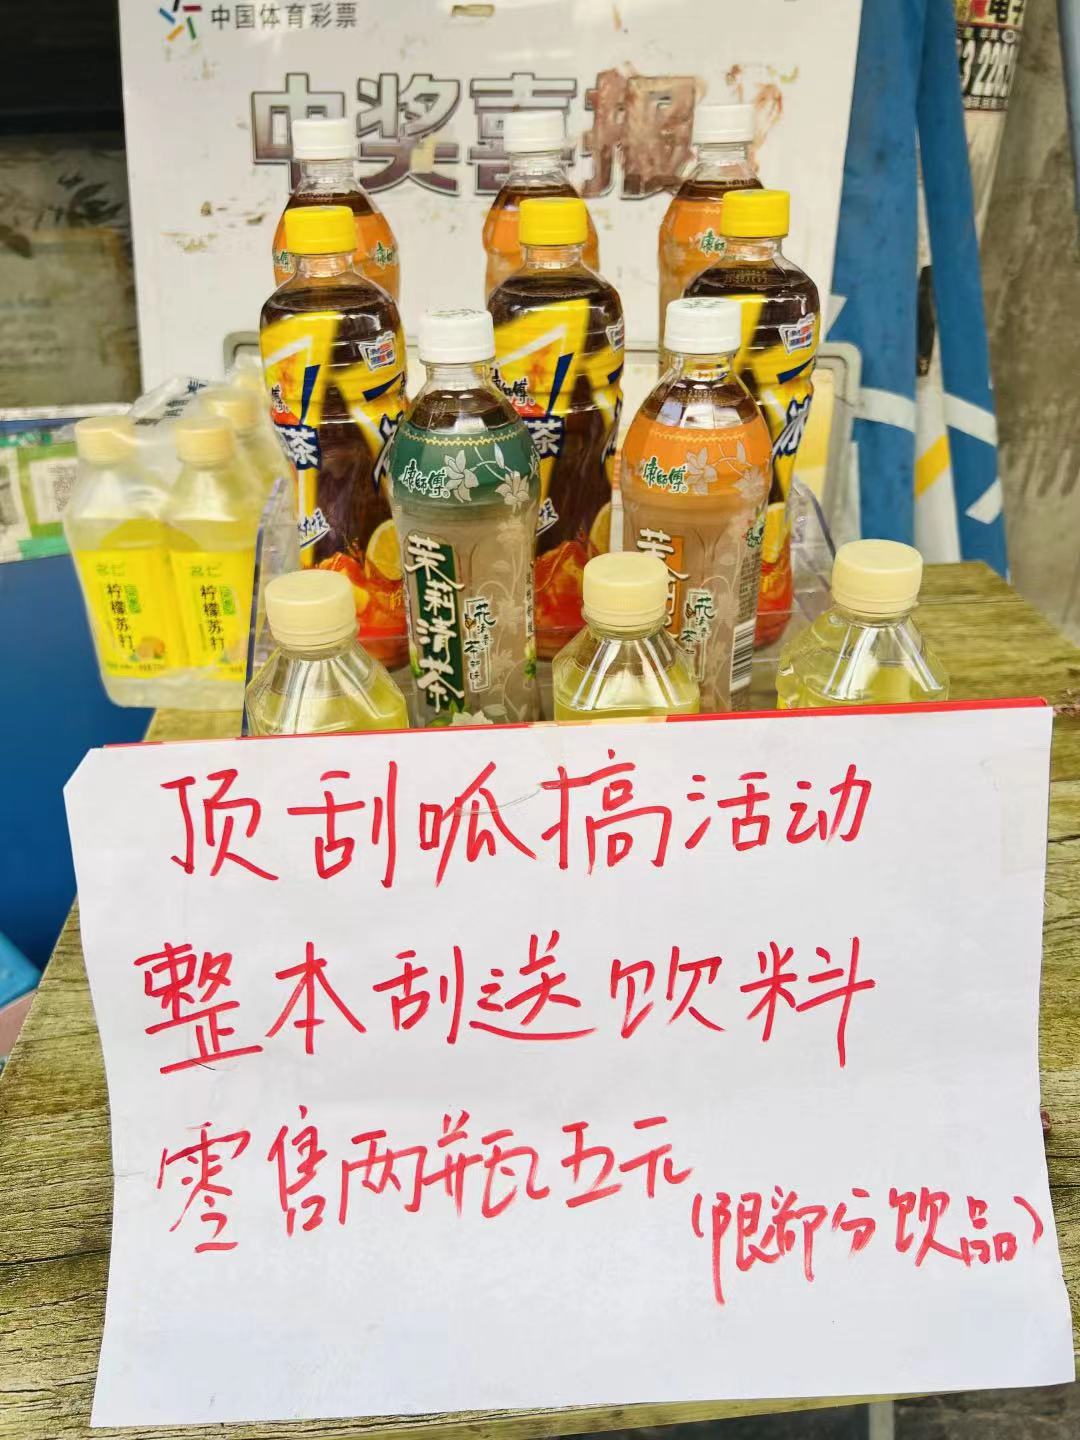 中国体育彩票
中奖喜报
康师傅
茶
冰
康師傅
茉莉清茶
花清香
茶新味
康師傅
茉
名仁
柠檬苏打
名仁
柠檬苏打
顶刮呱搞活动
整本刮送饮料
零售两瓶五元
(限部分饮品)